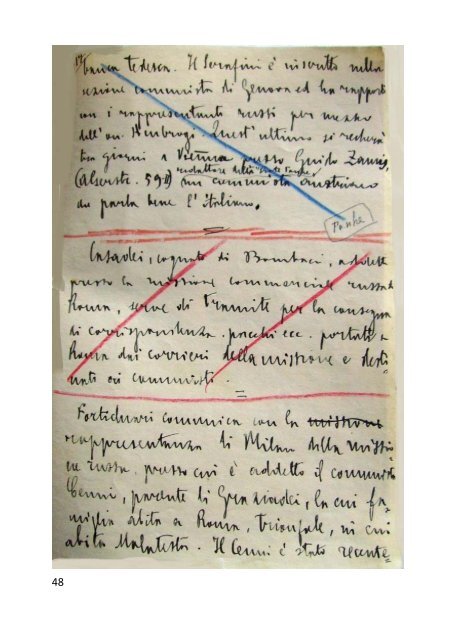 banca tedesca. Il Serafini è inscritto nella
sezione comunista di Genova ed ha rapporti
con i rappresentanti russi per mezzo
dell'on. D'Ambrogi. Quest'ultimo si recherà
tra giorni a Vienna presso Guido Zamis,
redattore della "Rote Fahne"
(Alserstr. 59 II) un comunista austriaco
che parla bene l'italiano.
Fahne
Casadei, cognato di Bombacci, addetto
presso la missione commerciale russa di
Roma, serve di tramite per la consegna
di corrispondenza, pacchi ecc. portati a
Roma dai corrieri della missione e desti-
nati ai comunisti.
Fortichiari comunica con la missione
rappresentanza di Milano della missio-
ne russa, presso cui è addetto il comunista
Cenni, parente di Graziadei, la cui fa-
miglia abita a Roma, Trionfale, in cui
abita Malatesta. Il Cenni è stato recente=
48